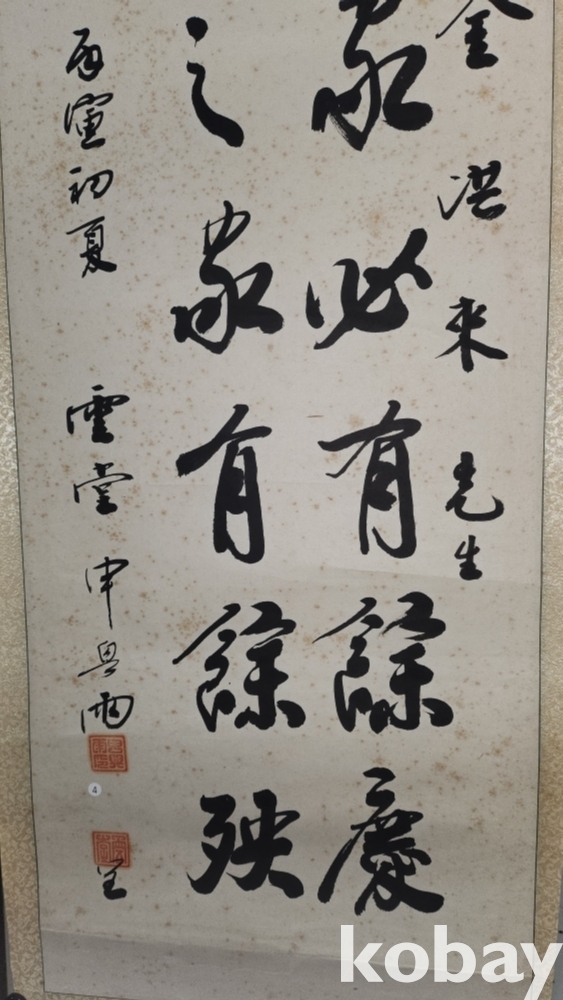 金洪來先生
家必有餘慶
之家有餘殃
丙寅初夏 雲堂 申 雨
呈
4
kobay